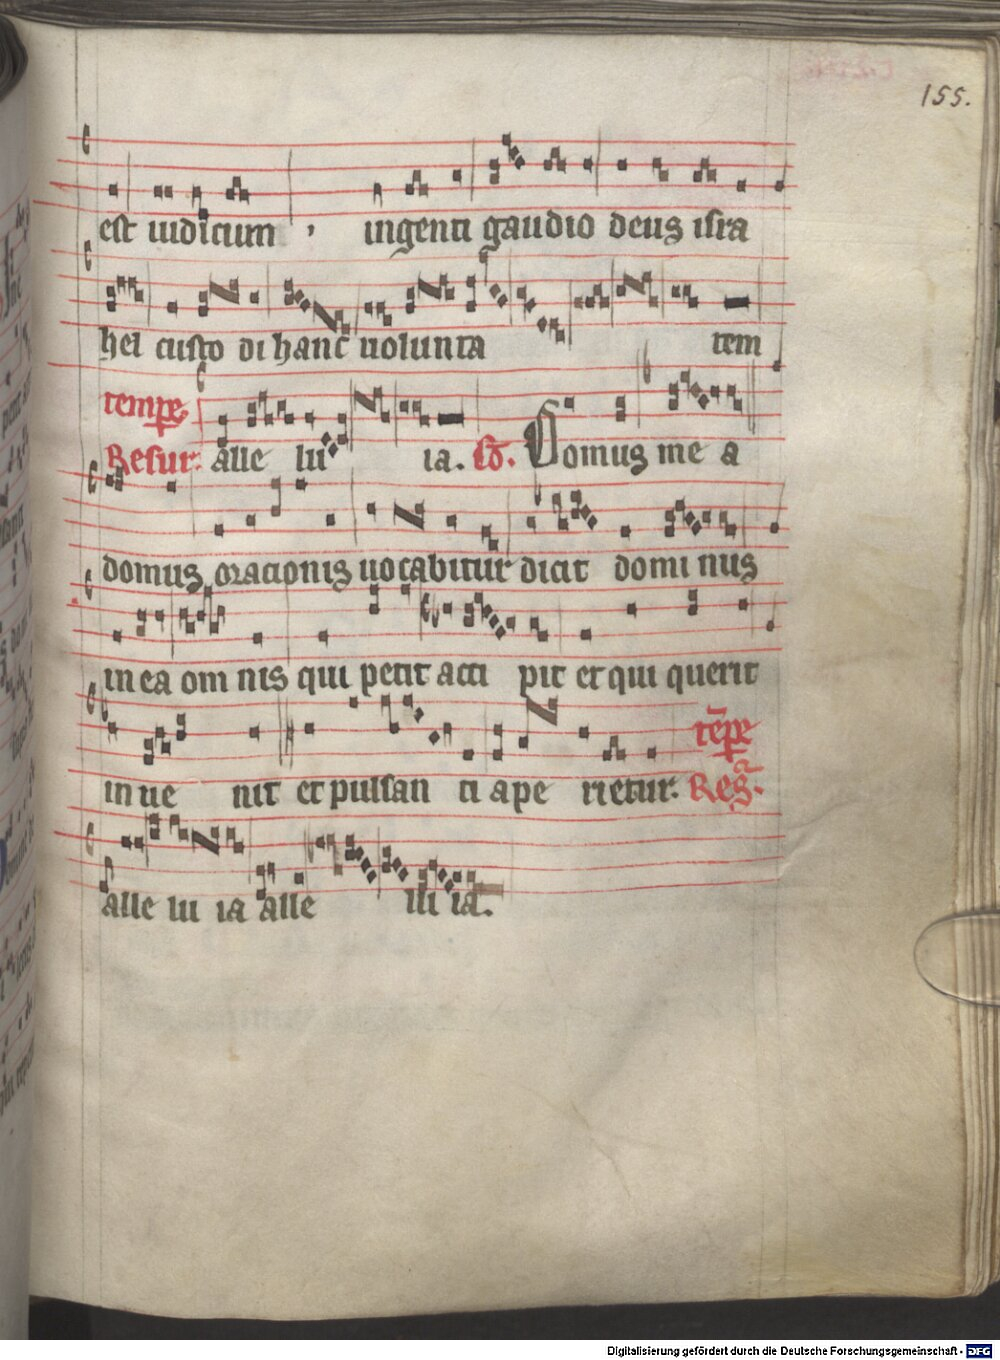 155.
est iudicum , ingenti gaudio deus isra
hel custo di hanc uolunta tem
tempe
Resur. alle lu ia. cō. Domus me a
domus oracionis uocabitur dicit domi nus
in ea om nis qui petit acci pit et qui querit
in ue nit et pulsan ti ape rietur. Reg.
tēpe
alle lu ia alle lu ia.
Digitalisierung gefördert durch die Deutsche Forschungsgemeinschaft - DFG